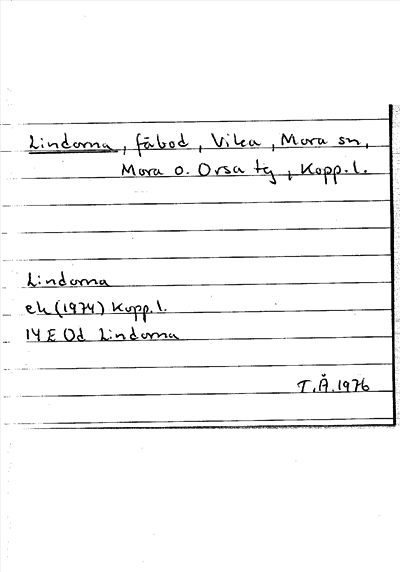 Lindorna, fäbod, Vika, Mora sn,
Mora o. Orsa tg, Kopp.l.
Lindorna
ek (1974) Kopp.l.
14 E 0d Lindorna
T.Å.1976